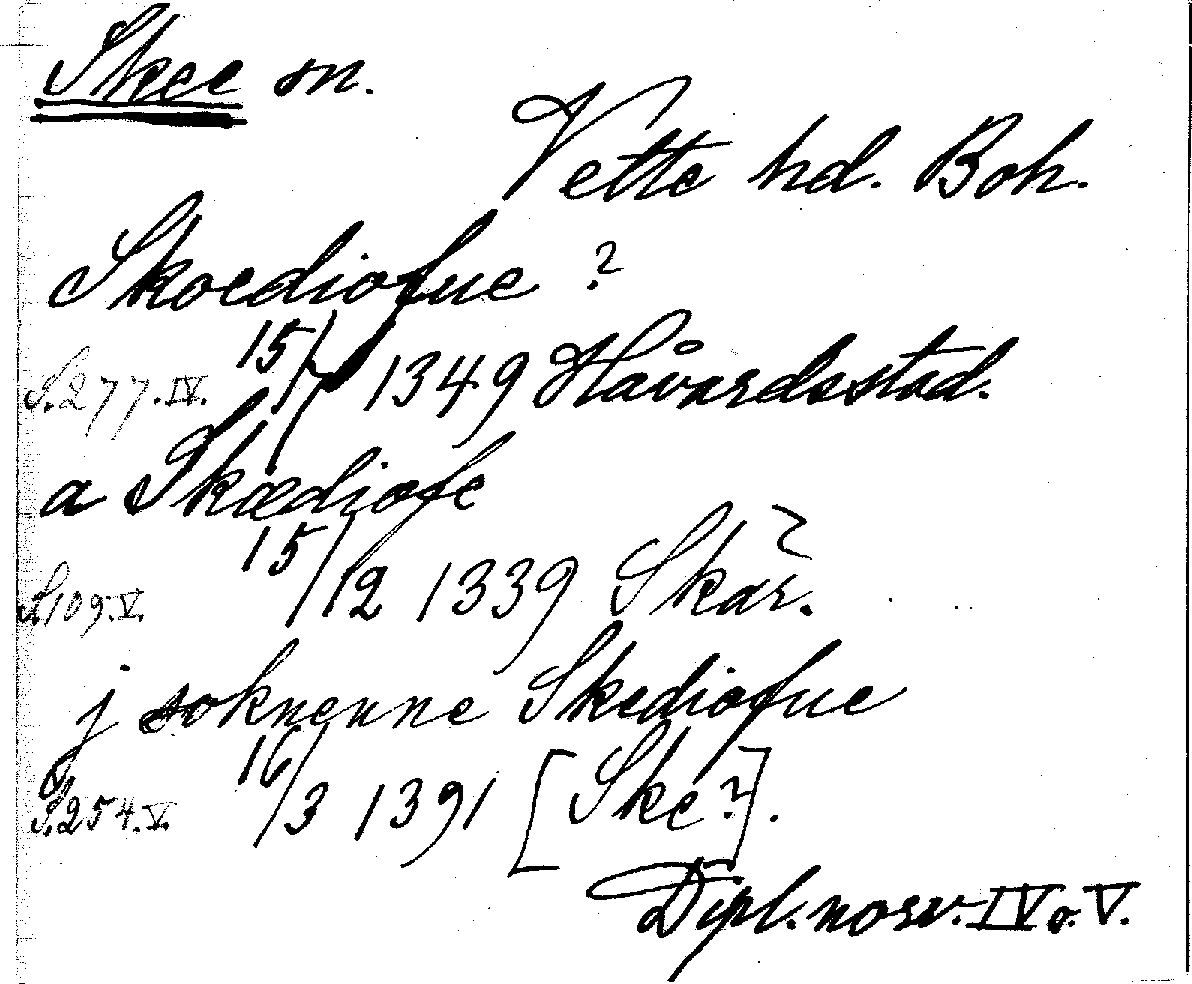 Skee sn.
Vette hd. Boh.
Skoediofue ?
S.277.IV. 15/7 1349 Håvardsstad.
a Skædiofe
S.109.V. 15/12 1339 Skär.
j soknenne Skediofue
S.254.V. 16/3 1391 [Ske?].
Dipl. norv. IV o. V.